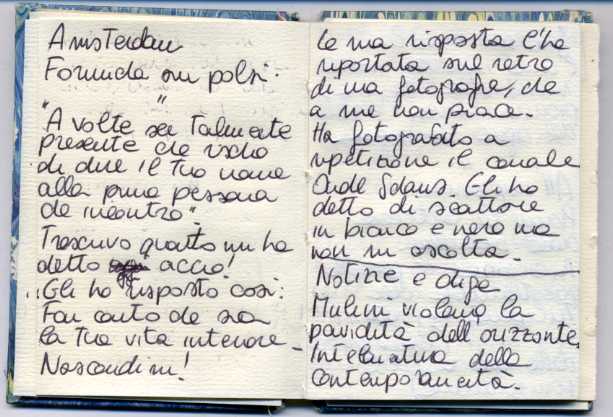 Amsterdam
Formula sui polsi:
"A volte sei talmente"
presente che rischio
di dire il tuo nome
alla prima persona
che incontro".
Trascrivo quanto mi ha
detto accio!
Gli ho risposto così:
Fai conto che sia
la tua vita interiore.
Nascondimi!
La mia risposta l'ha
riportata sul retro
di una fotografia, che
a me non piace.
Ha fotografato a
ripetizione il canale
Oude Schans. Gli ho
detto di scattare
in bianco e nero ma
non mi ascolta.
Notizie e dighe
Mulini violano la
pavidità dell'orizzonte.
Intelaiatura della
contemporaneità.